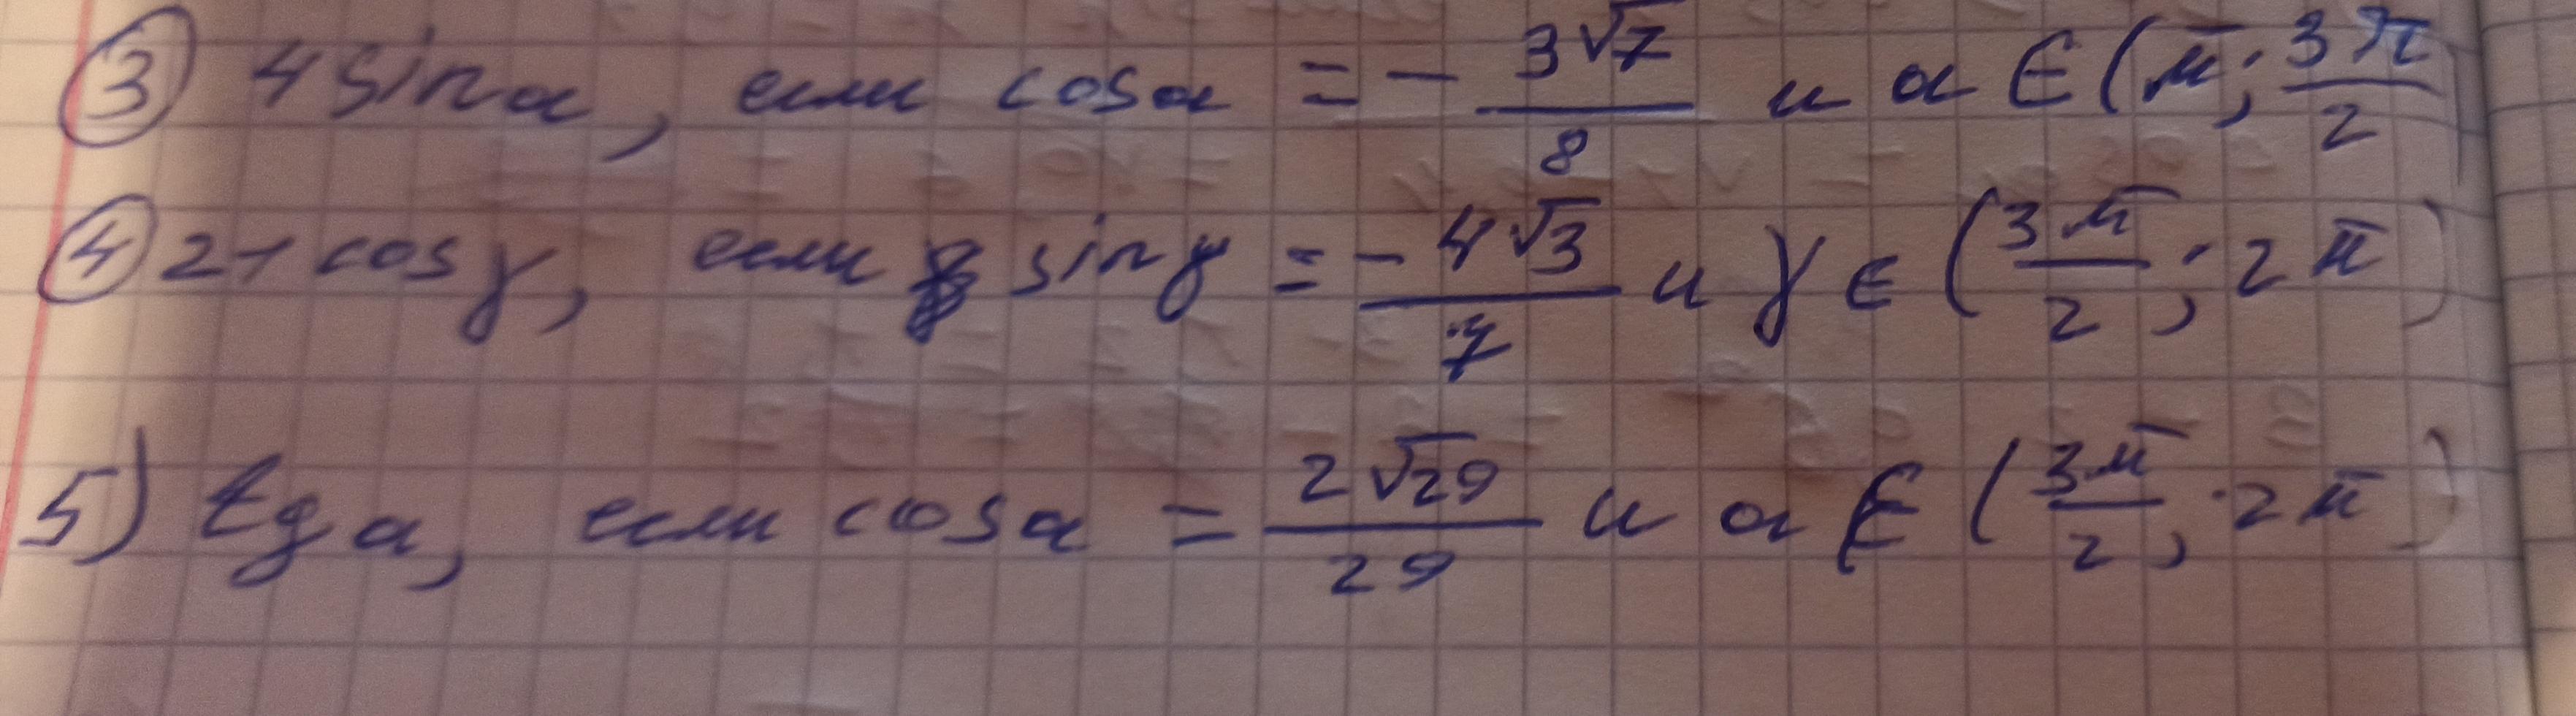 ③ 4 sin α, если cos α = - 3√7/8 и α ∈ (π; 3π/2)
④ 21 cos γ, если sin γ = - 4√3/7 и γ ∈ (3π/2; 2π)
5) tg α, если cos α = 2√29/29 и α ∈ (3π/2; 2π)